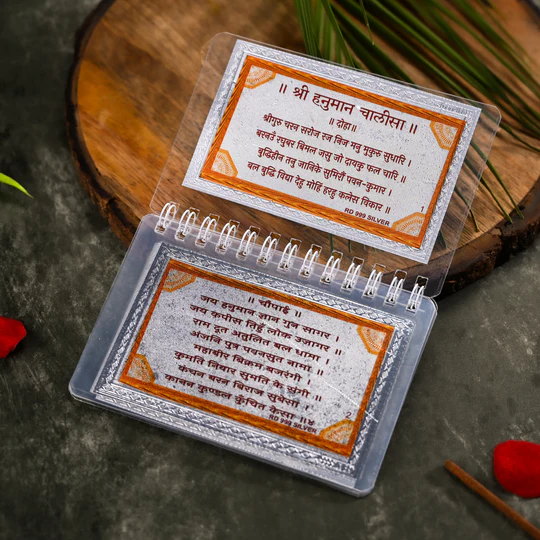 ॥ श्री हनुमान चालीसा ॥
॥ दोहा॥
श्रीगुरु चरन सरोज रज निज मनु मुकुरु सुधारि ।
बरनउँ रघुबर बिमल जसु जो दायकु फल चारि ॥
बुद्धिहीन तनु जानिके सुमिरौं पवन-कुमार ।
बल बुद्धि विद्या देहु मोहिं हरहु कलेस विकार ॥
RD 999 SILVER
1
॥ चौपाई ॥
जय हनुमान ज्ञान गुन सागर ।
जय कपीस तिहुँ लोक उजागर ॥
राम दूत अतुलित बल धामा ।
अंजनि पुत्र पवनसुत नामा ॥
महाबीर बिक्रम बजरंगी ।
कुमति निवार सुमति के संगी ॥
कंचन बरन बिराज सुबेसा ।
कानन कुण्डल कुंचित केसा ॥४
RD 999 SILVER
2